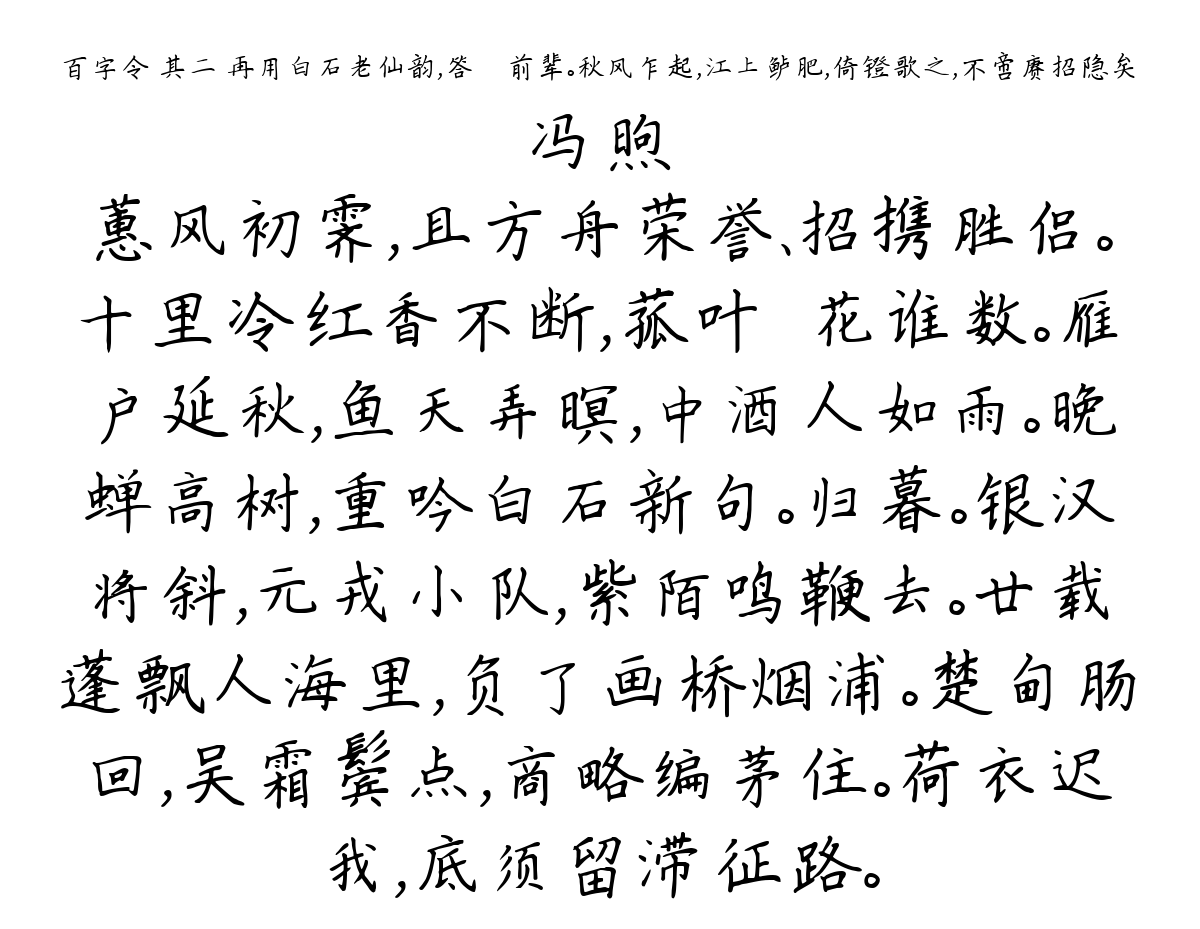 百字令 其二 再用白石老仙韵,答 前辈。秋风乍起,江上鲈肥,倚镫歌之,不啻赓招隐矣
冯煦
蕙风初霁,且方舟荣誉、招携胜侣。
十里冷红香不断,菰叶 花谁数。雁
户延秋,鱼天弄暝,中酒人如雨。晚
蝉高树,重吟白石新句。归暮。银汉
将斜,元戎小队,紫陌鸣鞭去。廿载
蓬飘人海里,负了画桥烟浦。楚甸肠
回,吴霜鬓点,商略编茅住。荷衣迟
我,底须留滞征路。